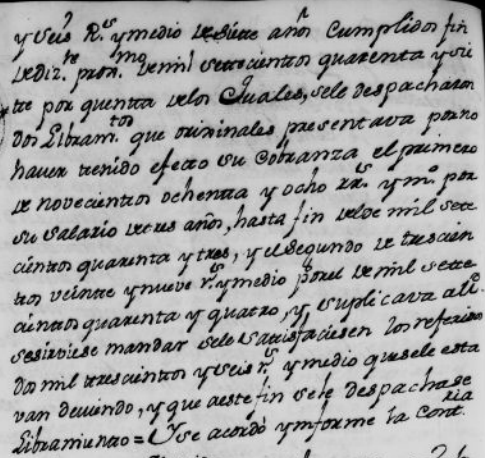 y seis R.s y medio de siete años Cumplidos fin
de diz.re prox.mo de mil setecientos quarenta y sie
te por quenta de los Quales, se le despacharon
dos Libram.tos que originales presentava por no
haver tenido efecto su Cobranza el primero
de novecientos ochenta y ocho rr.s y m.o por
su salario de tres años, hasta fin de el de mil sete
cientos quarenta y tres, y el segundo de trescien
tos veinte y nueve r.s y medio por el de mil sette
cientos quarenta y quatro, y suplicava al
se sirviese mandar se le satisfaciesen los referidos
dos mil trescientos y seis r.s y medio que se le esta
van deviendo, y que a este fin se le despachase
Libramiento = Y se acordó ynforme la Cont.ria